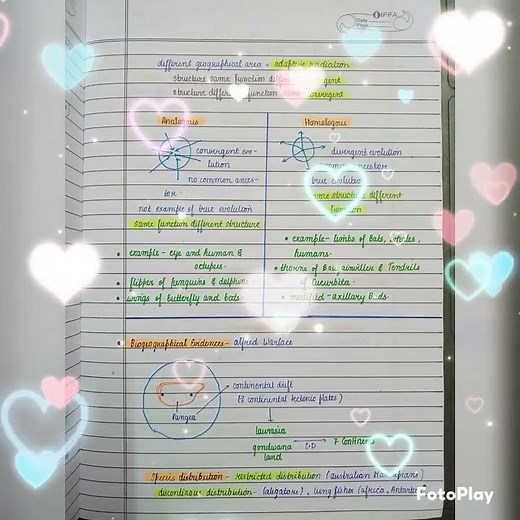 IFFA
Date
Page
different geographical area = adaptive radiation
structure same function
structure function
Analogous
Homologous
convergent evo-
lution
no common ances-
tor.
not example of true evolution
same function different structure
example - eye and human &
octupus.
flipper of penguins & dolphins
wings of butterfly and bats
divergent evolution
true evolution
same structure different
function
example - limbs of Bats, whales,
humans.
thorns of & Tendrils
of Cucurbita.
modified - axillary Buds.
Biogeographical Evidences - alfred
continental drift
( continental tectonic plates)
Pangea
laurasia
gondwana
land
C.D
7 Continents
Species distribution - restricted distribution (australian
distribution - (aligators), lung fishes (africa,
FotoPlay